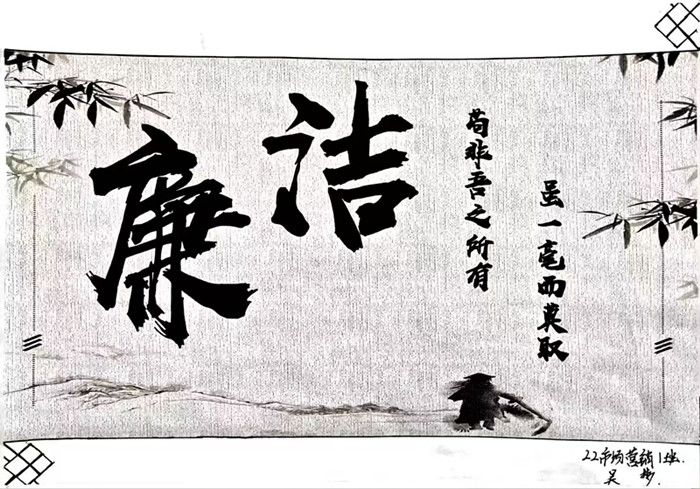 廉洁
苟非吾之所有
虽一毫而莫取
22市场营销1班.
吴